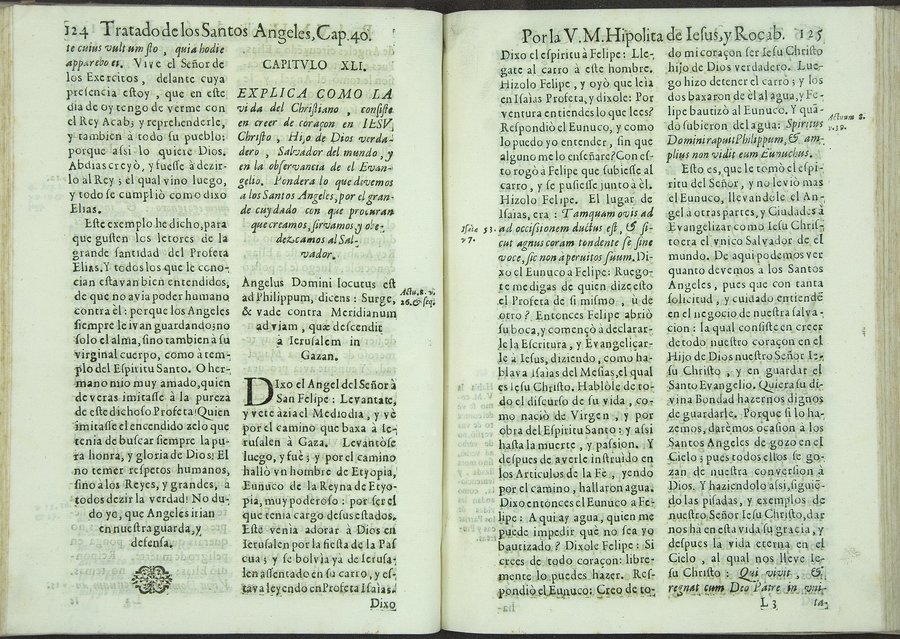 124 Tratado de los Santos Angeles, Cap. 40.
te cuius vultum sto, quia hodie
apparebo ei. Vive el Señor de
los Exercitos, delante cuya
presencia estoy, que en este
dia de oy tengo de verme con
el Rey Acab; y reprehenderle,
y tambien à todo su pueblo:
porque assi lo quiere Dios.
Abdias creyò, y fuesse à dezir-
lo al Rey; el qual vino luego,
y todo se cumpliò como dixo
Elias.
Este exemplo he dicho, para
que gusten los letores de la
grande santidad del Profeta
Elias. Y todos los que le cono-
cian estavan bien entendidos,
de que no avia poder humano
contra èl: porque los Angeles
siempre le ivan guardando; no
solo el alma, sino tambien a su
virginal cuerpo, como à tem-
plo del Espiritu Santo. O her-
mano mio muy amado, quien
de veras imitasse à la pureza
de este dichoso Profeta! Quien
imitasse el encendido zelo que
tenia de buscar siempre la pu-
ra honra, y gloria de Dios; El
no temer respetos humanos,
sino à los Reyes, y grandes, à
todos dezir la verdad: No du-
do yo, que Angeles irian
en nuestra guarda, y
defensa.
CAPITVLO XLI.
EXPLICA COMO LA
vida del Christiano, consiste
en creer de coraçon en IESV
Christo, Hijo de Dios verda-
dero, Salvador del mundo, y
en la observancia de el Evan-
gelio. Pondera lo que devemos
a los Santos Angeles, por el gran-
de cuydado con que procuran
que creamos, sirvamos, y obe-
dezcamos al Sal-
vador.
Angelus Domini locutus est
ad Philippum, dicens: Surge,
& vade contra Meridianum
ad viam, quæ descendit
a Ierusalem in
Gazan.
Actu. 8. v.
26. & seq.
Dixo el Angel del Señor à
San Felipe: Levantate,
y vete azia el Mediodia, y vè
por el camino que baxa à Ie-
rusalen à Gaza. Levantòse
luego, y fuè; y por el camino
hallò vn hombre de Etyopia,
Eunuco de la Reyna de Etyo-
pia, muy poderoso: por ser el
que tenia cargo de sus estados.
Este venia adorar à Dios en
Ierusalen por la fiesta de la Pas
cua; y se bolvia ya de Ierusa-
len assentado en su carro, y es-
tava leyendo en Profeta Isaias.
Dixo
Por la V. M. Hipolita de Iesus, y Rocab. 125
Dixo el espiritu à Felipe: Lle-
gate al carro à este hombre.
Hizolo Felipe, y oyò que leìa
en Isaias Profeta, y dixole: Por
ventura entiendes lo que lees?
Respondiò el Eunuco, y como
lo puedo yo entender, sin que
alguno me lo enseñare? Con es-
to rogò a Felipe que subiesse al
carro, y se pusiesse junto à èl.
Hizolo Felipe. El lugar de
Isaias, era: Tamquam ovis ad
ad occisionem ductus est, & si-
cut agnus coram tondente se sine
voce, sic non aperuit os suum. Di-
xo el Eunuco a Felipe: Ruego-
te me digas de quien dize esto
el Profeta de si mismo, ù de
otro? Entonces Felipe abriò
su boca, y començò a declarar-
le la Escritura, y Evangelicar-
le à Iesus, diziendo, como ha-
blava Isaias del Mesias, el qual
es Iesu Christo. Hablòle de to-
do el discurso de su vida, co-
mo naciò de Virgen, y por
obra del Espiritu Santo: y assi
hasta la muerte, y passion. Y
despues de averle instruido en
los Articulos de la Fè, yendo
por el camino, hallaron agua.
Dixo entonces el Eunuco a Fe-
lipe: A qui ay agua, quien me
puede impedir que no sea yo
bautizado? Dixole Felipe: Si
crees de todo coraçon: libre-
mente lo puedes hazer. Res-
pondiò el Eunuco: Creo de to-
Isaie 53.
v 7.
do mi coraçon ser Iesu Christo
hijo de Dios verdadero. Lue-
go hizo detener el carro; y los
dos baxaron de èl al agua, y Fe-
lipe bautizò al Eunuco. Y quã-
do subieron del agua: Spiritus
Domini rapuit Philippum, & am-
plius non vidit eum Eunuchus.
Actuum 8.
v. 39.
Esto es, que le tomò el espi-
ritu del Señor, y no le viò mas
el Eunuco, llevandole el An-
gel a otras partes, y Ciudades à
Evangelizar como Iesu Chris-
to era el vnico Salvador de el
mundo. De aqui podemos ver
quanto devemos a los Santos
Angeles, pues que con tanta
solicitud, y cuidado entiendẽ
en el negocio de nuestra salva-
cion: la qual consiste en creer
de todo nuestro coraçon en el
Hijo de Dios nuestro Señor Ie-
su Christo, y en guardar el
Santo Evangelio. Quiera su di-
vina Bondad hazernos dignos
de guardarle. Porque si lo ha-
zemos, darèmos ocasiòn à los
Santos Angeles de gozo en el
Cielo; pues todos ellos se go-
zan de nuestra conversiòn à
Dios. Y haziendolo assi, siguiẽ-
do las pisadas, y exemplos de
nuestro Señor Iesu Christo, dar
nos ha en esta vida su gracia, y
despues la vida eterna en el
Cielo, al qual nos lleve Ie-
su Christo: Qui vivit, &
regnat cum Deo Patre in vni-
L 3 ta-